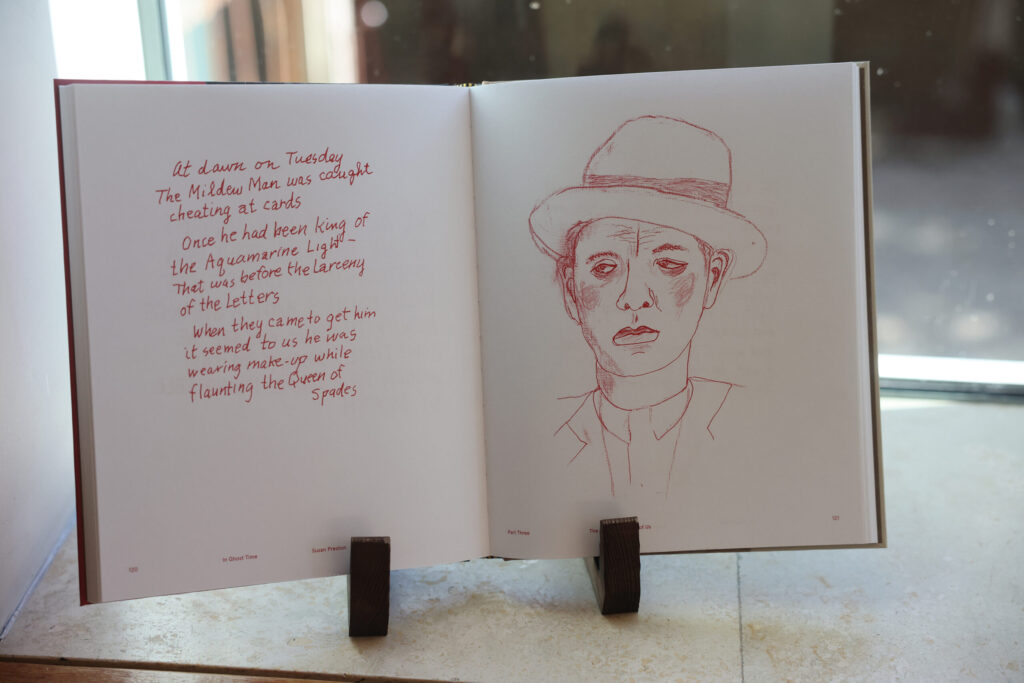 At dawn on Tuesday
The Mildew Man was caught
cheating at cards
Once he had been king of
the Aquamarine Light –
That was before the Larceny
of the Letters
When they came to get him
it seemed to us he was
wearing make-up while
flaunting the Queen of
Spades
120
In Ghost Time
Susan Preston
Part Three
The
of Us
121